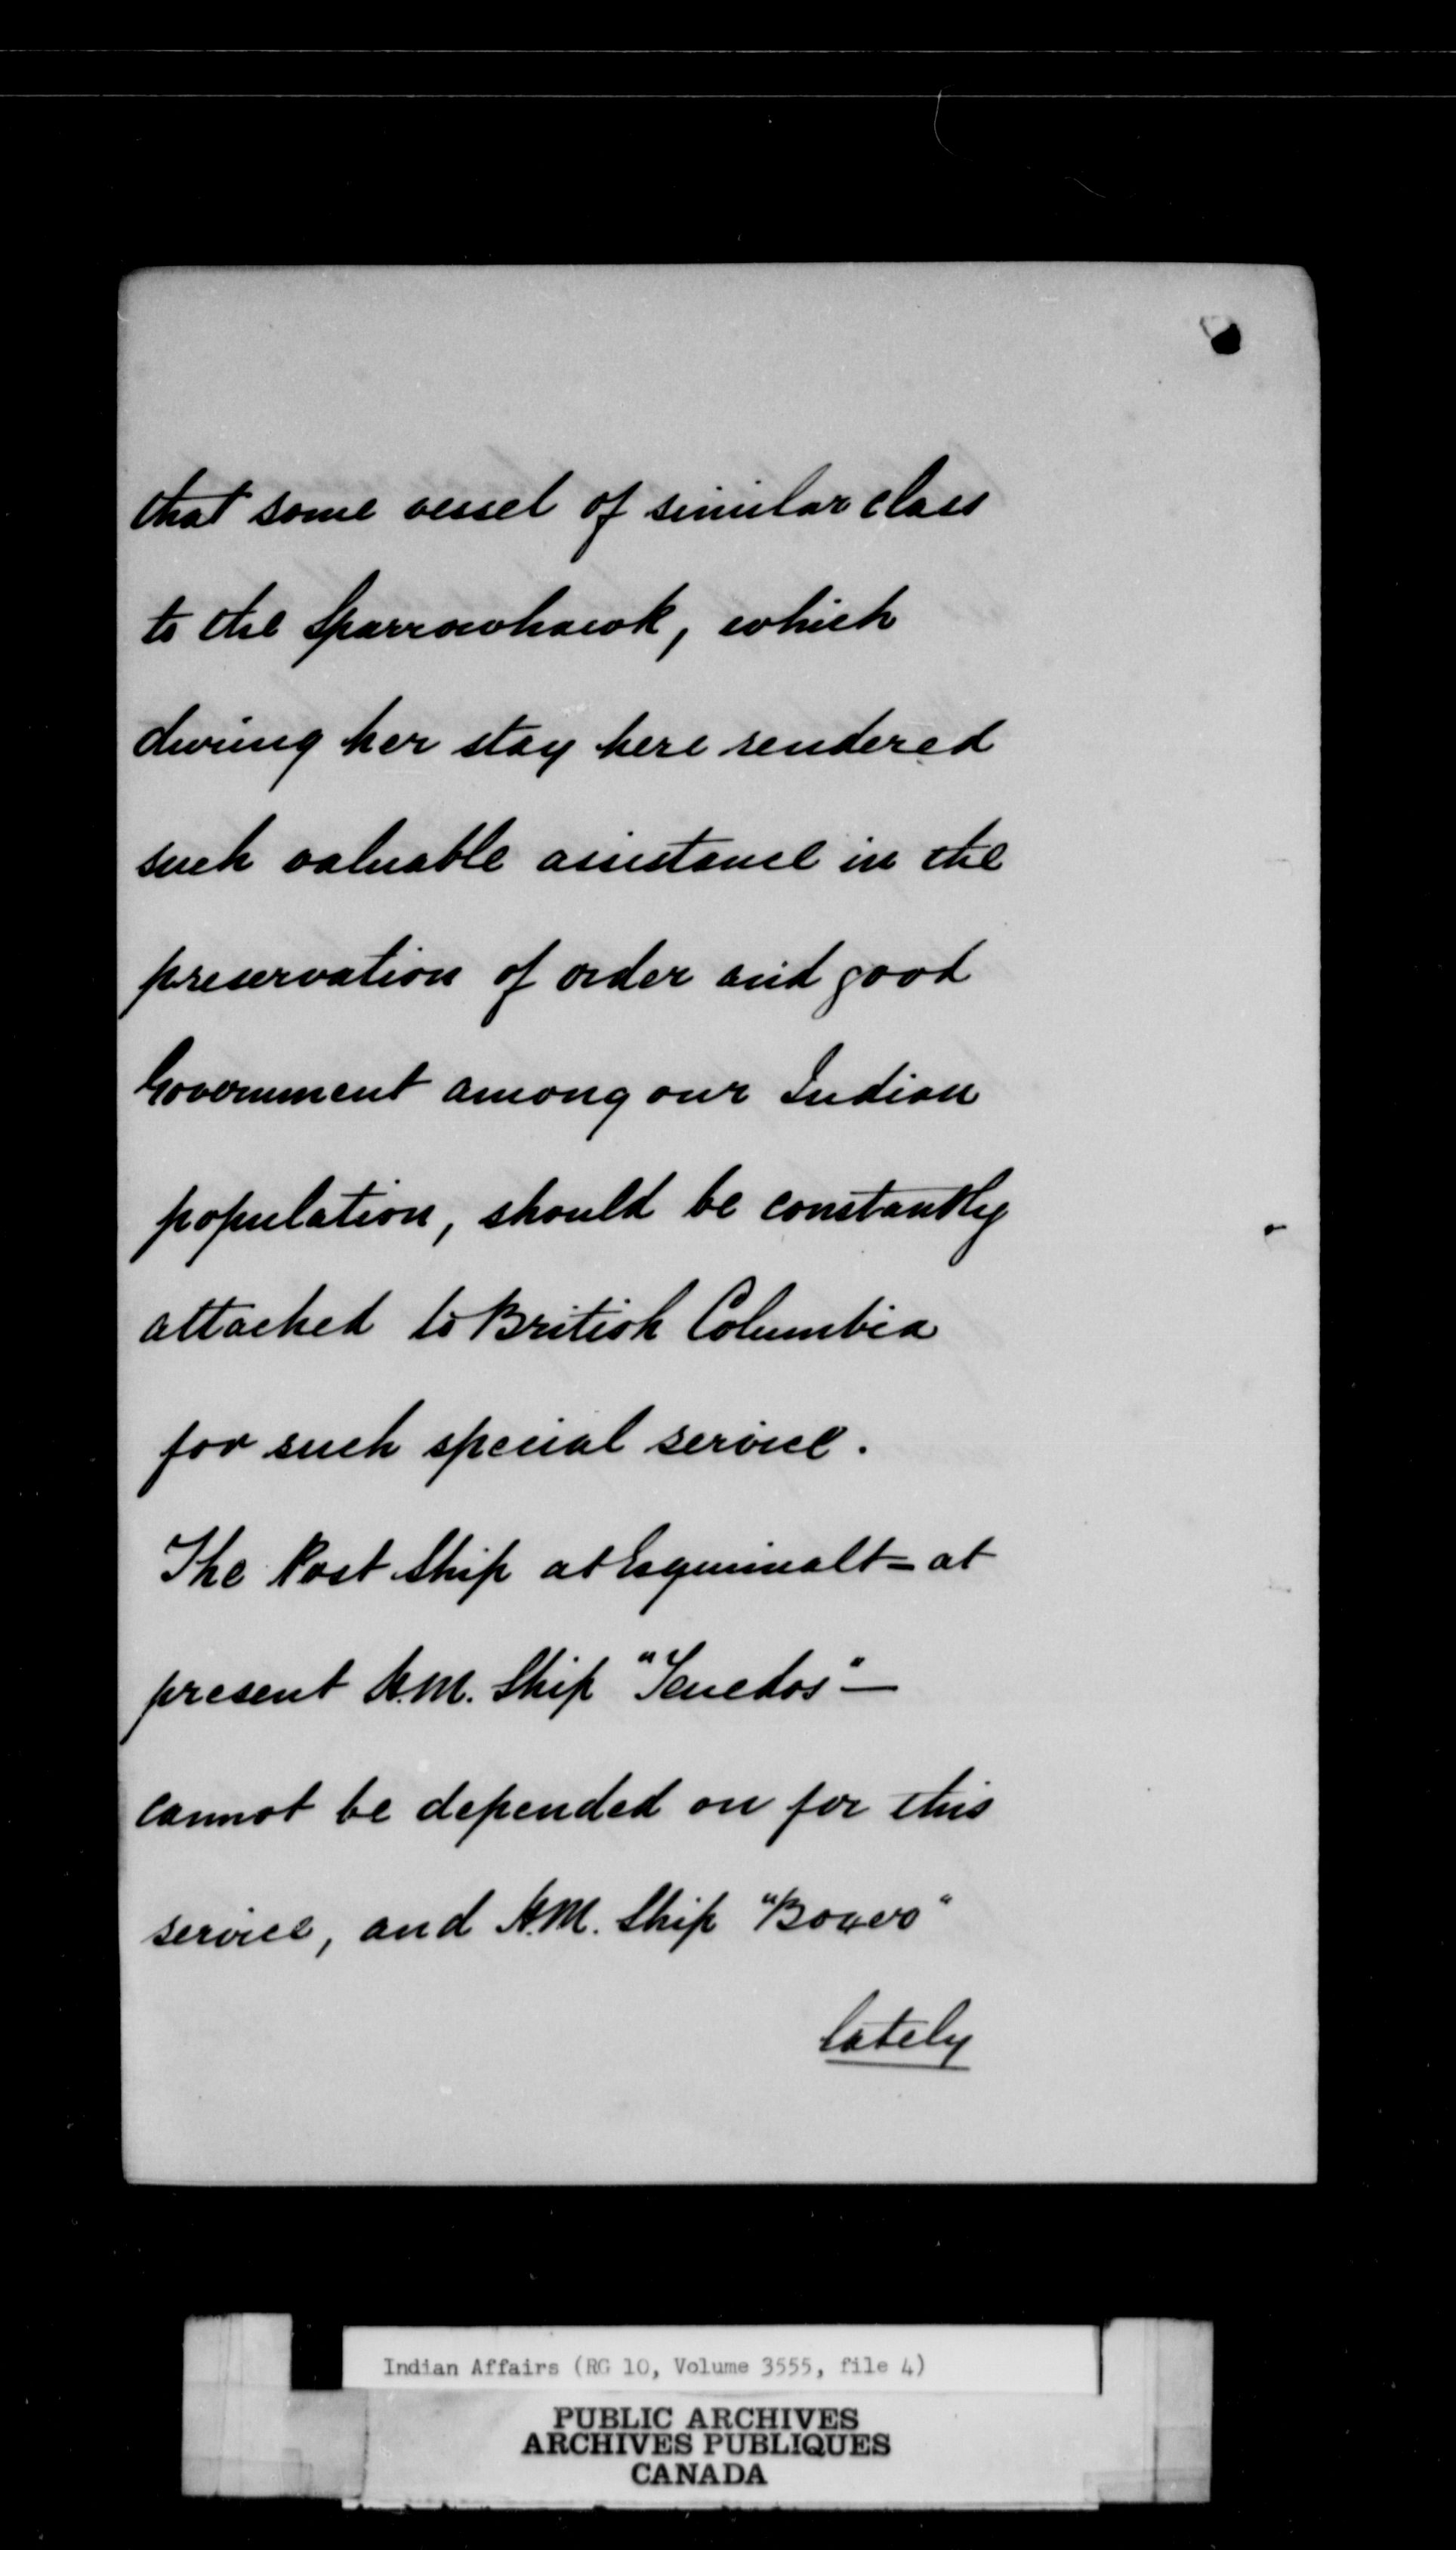 that some vessel of similar class
to the Sparrowhawk, which
during her stay here rendered
such valuable assistance in the
preservation of order and good
Government among our Indian
population, should be constantly
attached to British Columbia
for such special service.
The Post Ship at Esquimalt = at
present H.M. Ship "Tenedos" —
cannot be depended on for this
service, and H.M. Ship "Boxer"
lately
Indian Affairs (RG 10, Volume 3555, file 4)
PUBLIC ARCHIVES
ARCHIVES PUBLIQUES
CANADA